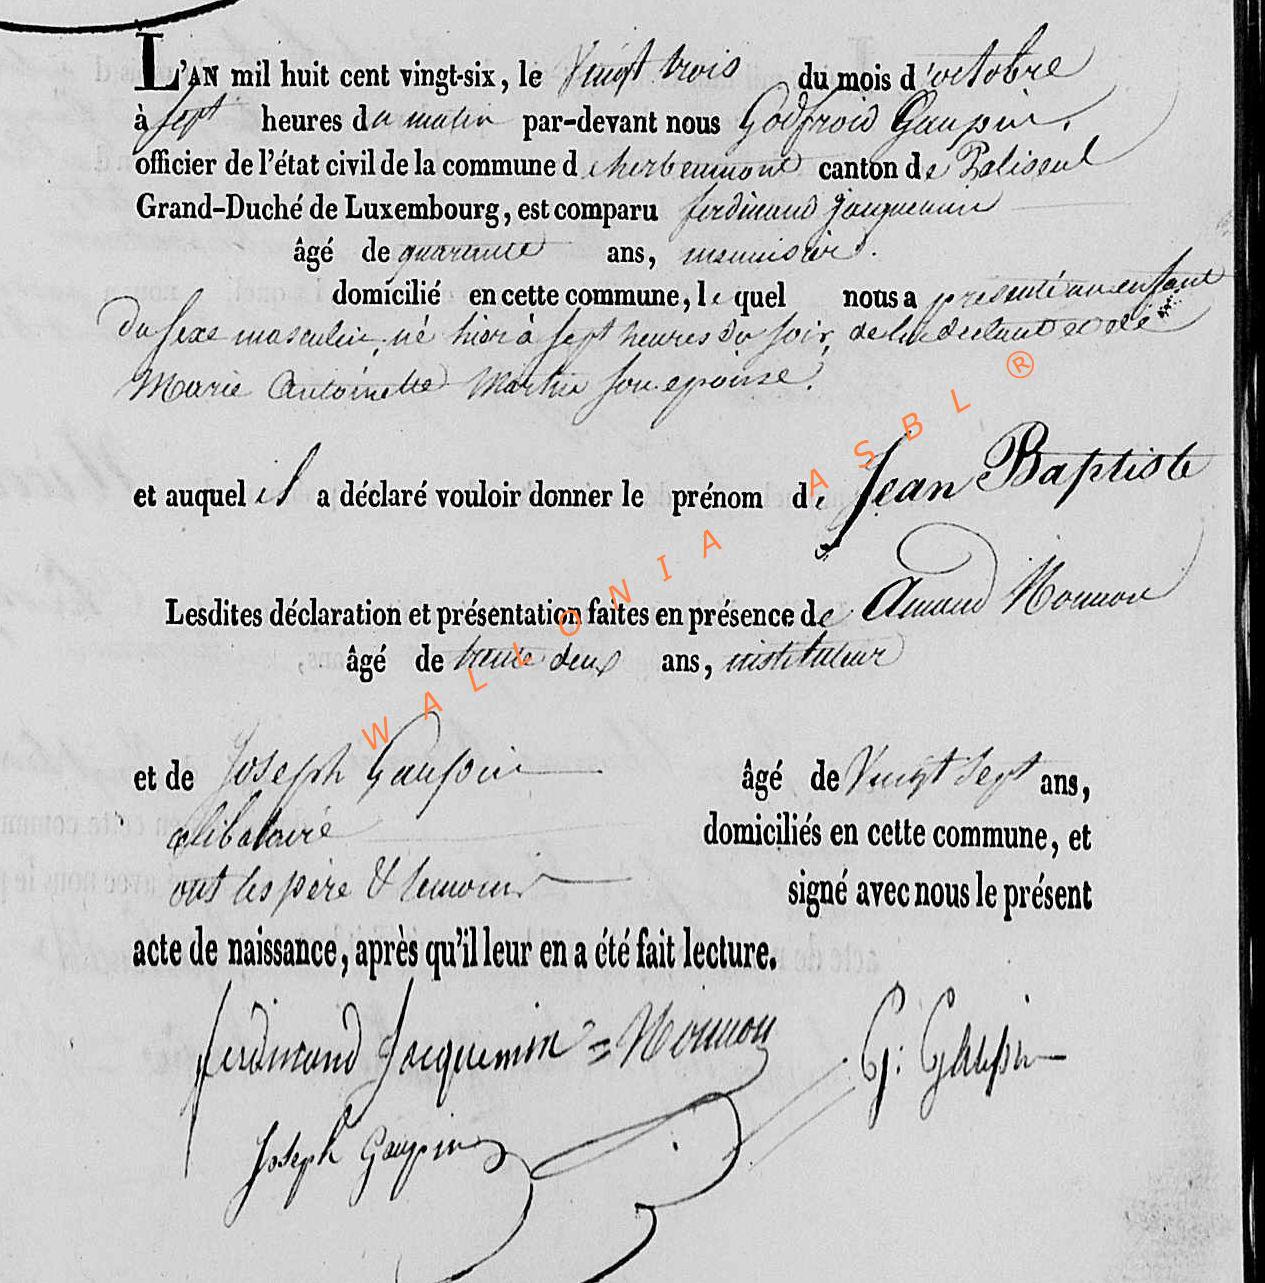 L'AN mil huit cent vingt-six, le Vingt trois du mois d'octobre
à sept heures du matin par-devant nous Godfroid Gaupin,
officier de l'état civil de la commune d'herbeumont canton de Paliseul
Grand-Duché de Luxembourg, est comparu ferdinand Jacquemin
âgé de quarante ans, menuisier.
domicilié en cette commune, lequel nous a présenté un enfant
du sexe masculin, né hier à sept heures du soir, de lui déclarant et de
Marie Antoinette Martin son épouse.
et auquel il a déclaré vouloir donner le prénom de Jean Baptiste
Lesdites déclaration et présentation faites en présence de Amand Nonnon
âgé de trente deux ans, instituteur
et de Joseph Gaupin âgé de Vingt Sept ans,
célibataire domiciliés en cette commune, et
ont les père & témoins signé avec nous le présent
acte de naissance, après qu'il leur en a été fait lecture.
ferdinand Jacquemin = Nonnon G. Gaupin
Joseph Gaupin
WALLONIA ASBL ®